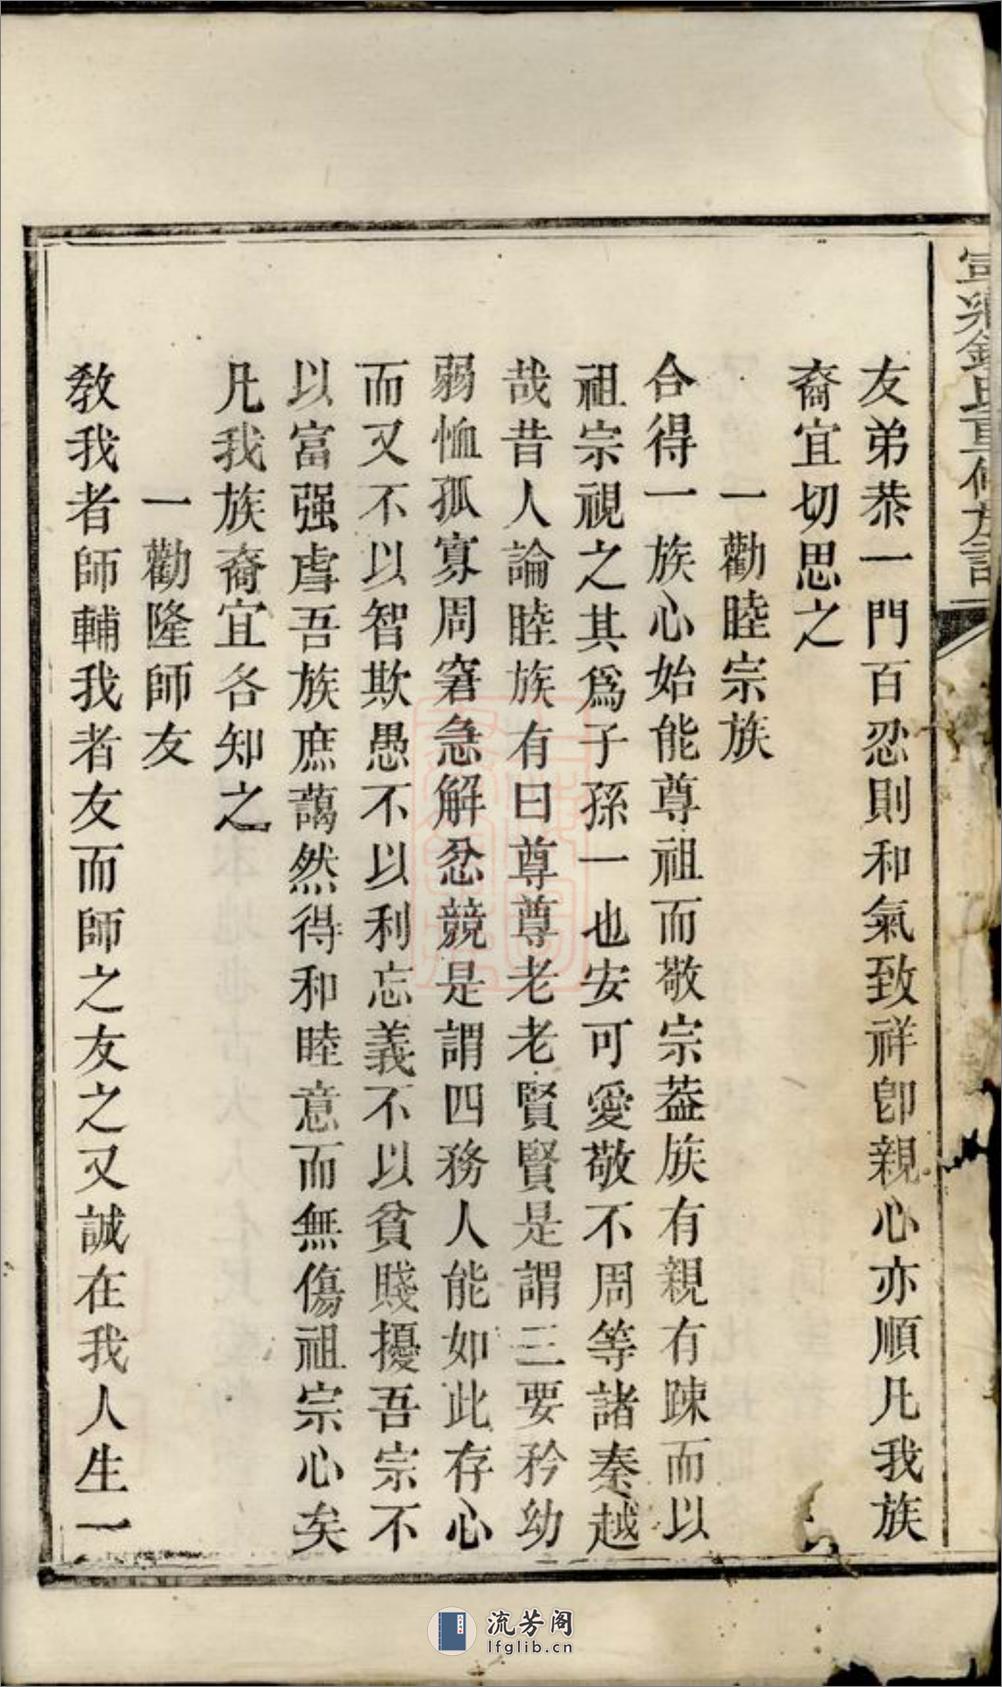 友弟恭一門百忍則和氣致祥卽親心亦順凡我族
裔宜切思之
一勸睦宗族
合得一族心始能尊祖而敬宗葢族有親有踈而以
祖宗視之其爲子孫一也安可愛敬不周等諸秦越
哉昔人論睦族有曰尊尊老老賢賢是謂三要矜幼
弱恤孤寡周窘急解忿競是謂四務人能如此存心
而又不以智欺愚不以利忘義不以貧賤擾吾宗不
以富强虐吾族庶藹然得和睦意而無傷祖宗心矣
凡我族裔宜各知之
一勸隆師友
敎我者師輔我者友而師之友之又誠在我人生一
流芳阁
lfglib.cn